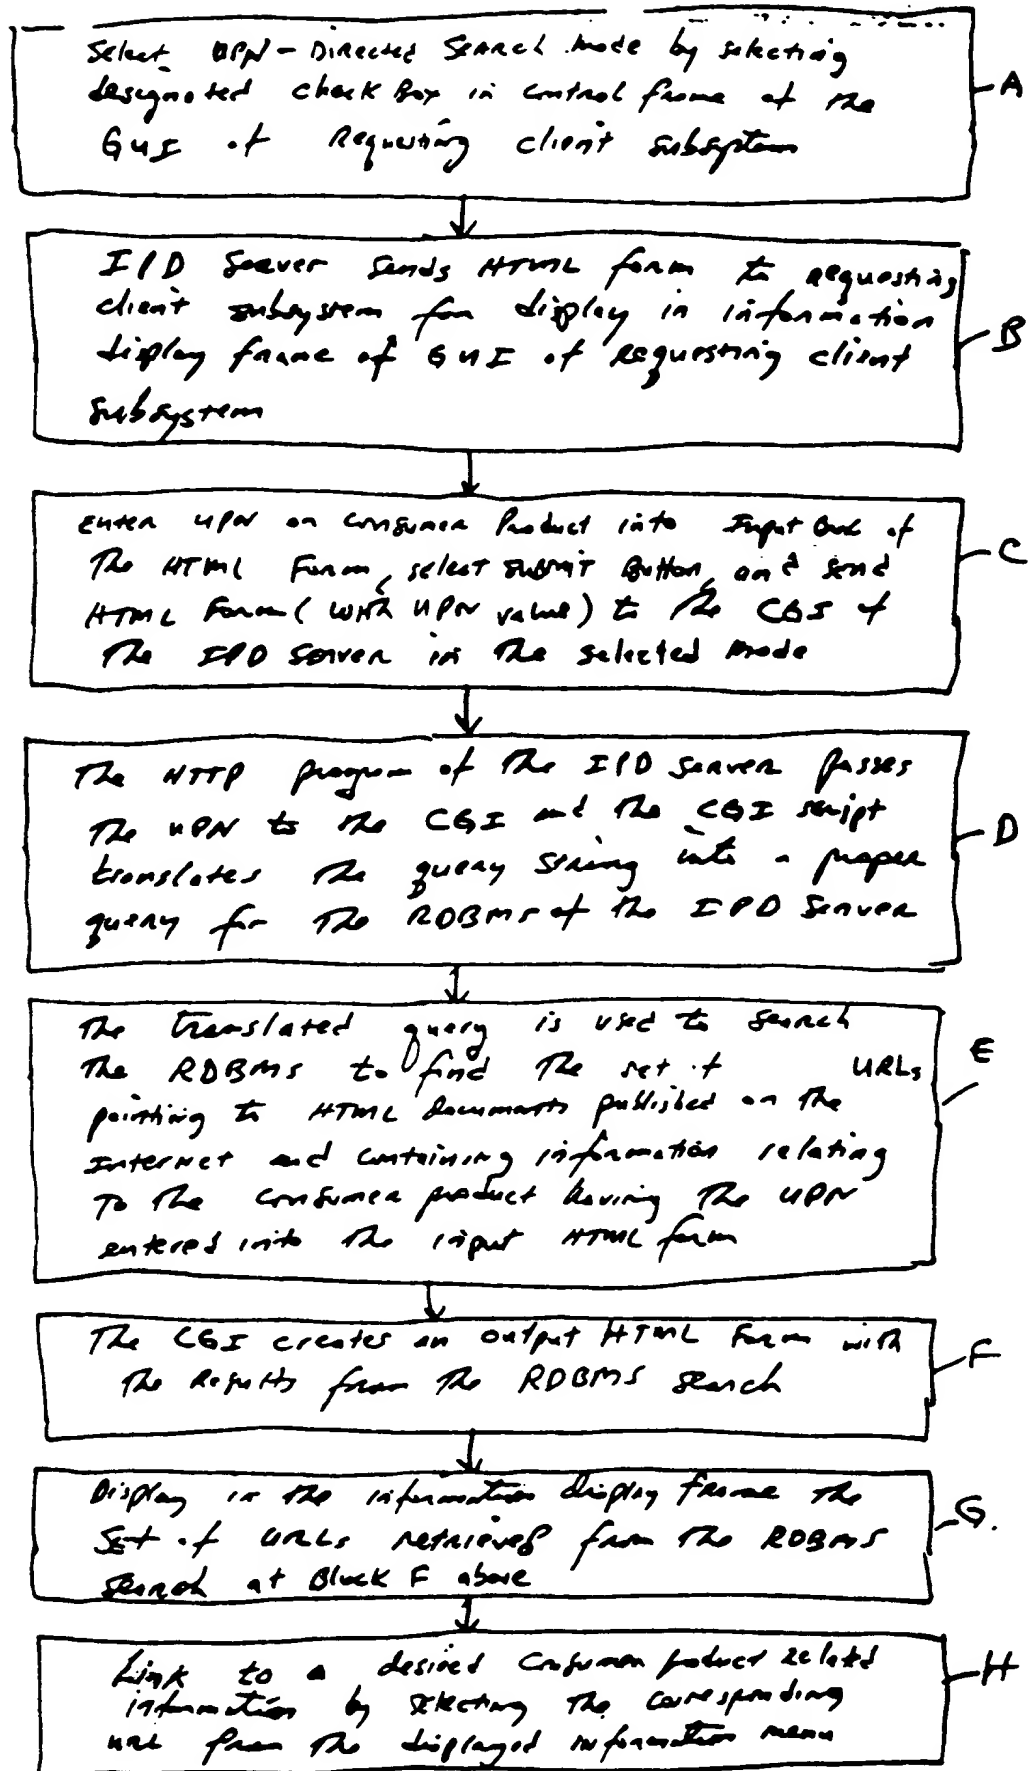 Select UPN-Directed Search Mode by selecting
designated check Box in control frame of the
GUI of Requesting client subsystem
A
IPD Server sends HTML form to requesting
client subsystem for display in information
display frame of GUI of Requesting client
subsystem
B
Enter UPN on Consumer Product into Input Box of
The HTML Form, select submit Button, and send
HTML Form (with UPN value) to the CGI of
The IPD Server in the selected Mode
C
The HTTP program of the IPD Server passes
the UPN to the CGI and the CGI script
translates the query string into a proper
query for the RDBMS of the IPD Server
D
The translated query is used to search
the RDBMS to find the set of URLs
pointing to HTML documents published on the
Internet and containing information relating
To the consumer product having the UPN
entered into the input HTML form
E
The CGI creates an output HTML Form with
the Results from the RDBMS Search
F
Display in the information display frame the
Set of URLs retrieved from the RDBMS
Search at Block F above
G.
Link to a desired Consumer product related
information by selecting the corresponding
URL from the displayed information menu
H